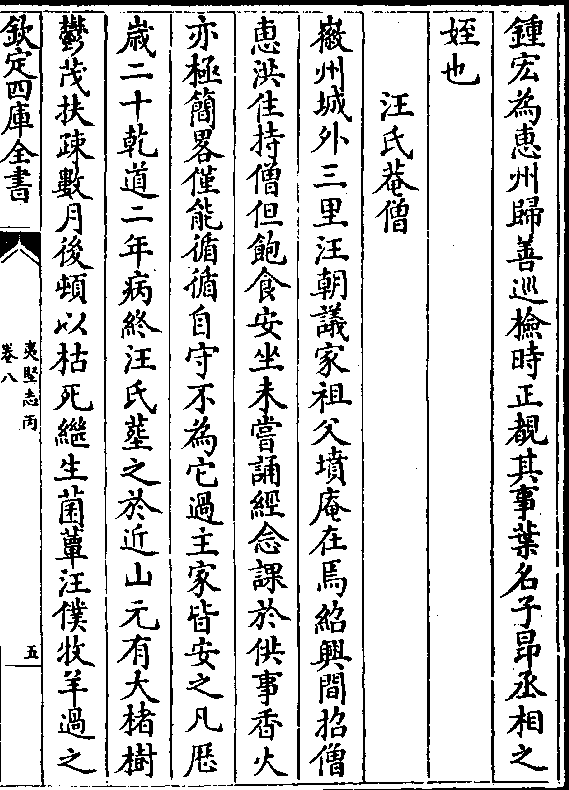 鍾宏為惠州歸善巡檢時正覩其事葉名子昂丞相之
姪也
汪氏菴僧
徽州城外三里汪朝議家祖父墳庵在焉紹興間招僧
惠洪住持僧但飽食安坐未嘗誦經念課於供事香火
亦極簡畧僅能循循自守不為它過主家皆安之凡歷
歲二十乾道二年病終汪氏塟之於近山元有大楮樹
鬱茂扶疎數月後頓以枯死繼生菌蕈汪僕牧羊過之
欽定四庫全書
夷堅志丙
卷八
五